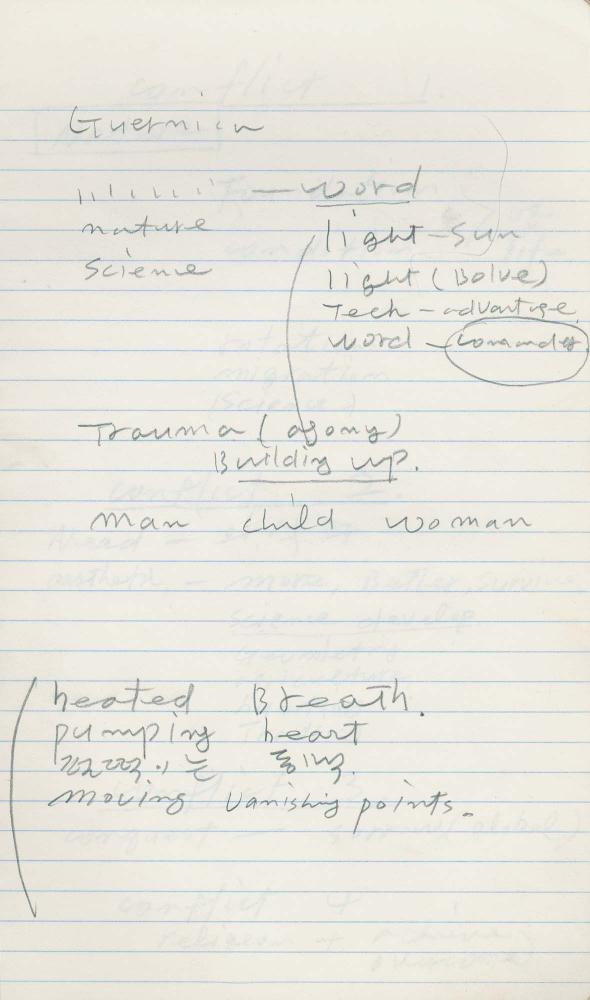 Guernica
— word
nature
light - Sun
science
light (Bolve)
Tech - advantage
word -
Trauma (agony)
Building up.
man child woman
heated Breath.
pumping heart
moving vanishing points.